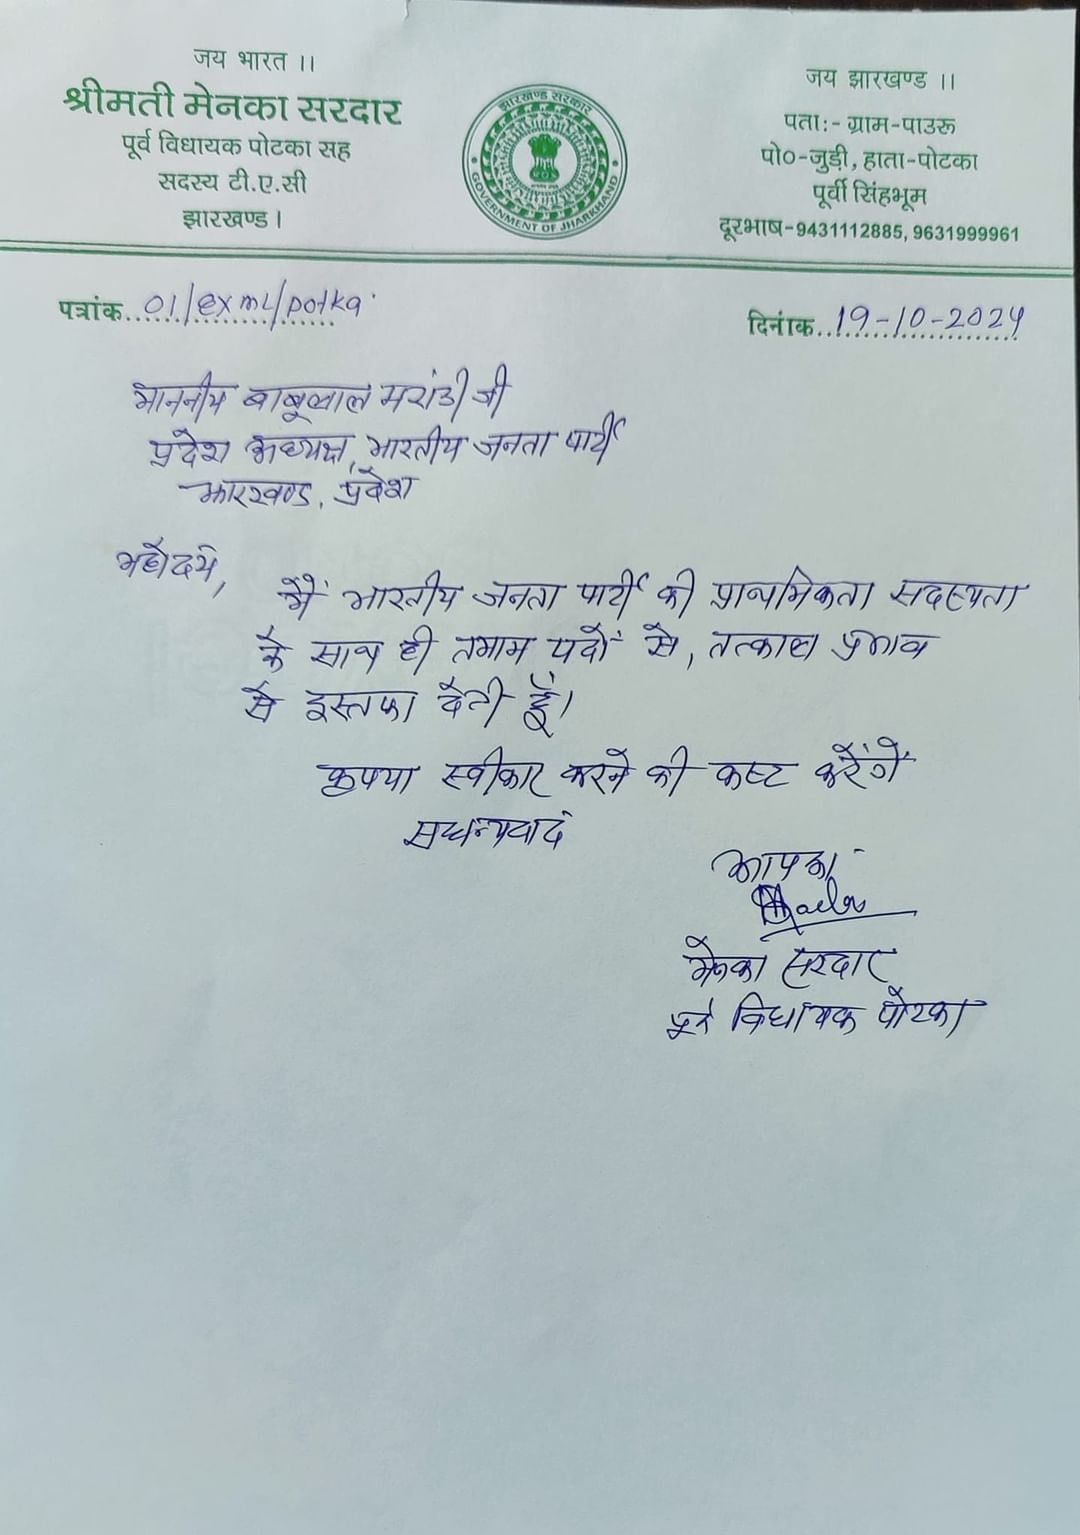 जय भारत ।।
श्रीमती मेनका सरदार
पूर्व विधायक पोटका सह
सदस्य टी.ए.सी
झारखण्ड।
झारखण्ड सरकार
GOVERNMENT OF JHARKHAND
जय झारखण्ड ।।
पता:- ग्राम-पाउरू
पो०-जुड़ी, हाता-पोटका
पूर्वी सिंहभूम
दूरभाष-9431112885, 9631999961
पत्रांक 01/ex ML/potka
दिनांक 19-10-2024
माननीय बाबूलाल मरांडी जी
प्रदेश अध्यक्ष, भारतीय जनता पार्टी
झारखण्ड, प्रदेश
महोदये,
मैं भारतीय जनता पार्टी की प्राथमिकता सदस्यता
के साथ ही तमाम पदों से, तत्काल प्रभाव
से इस्तफा देती हूँ।
कृपया स्वीकार करने की कष्ट करेंगें
सधन्यवाद
आपका
मेनका सरदार
पूर्व विधायक पोटका